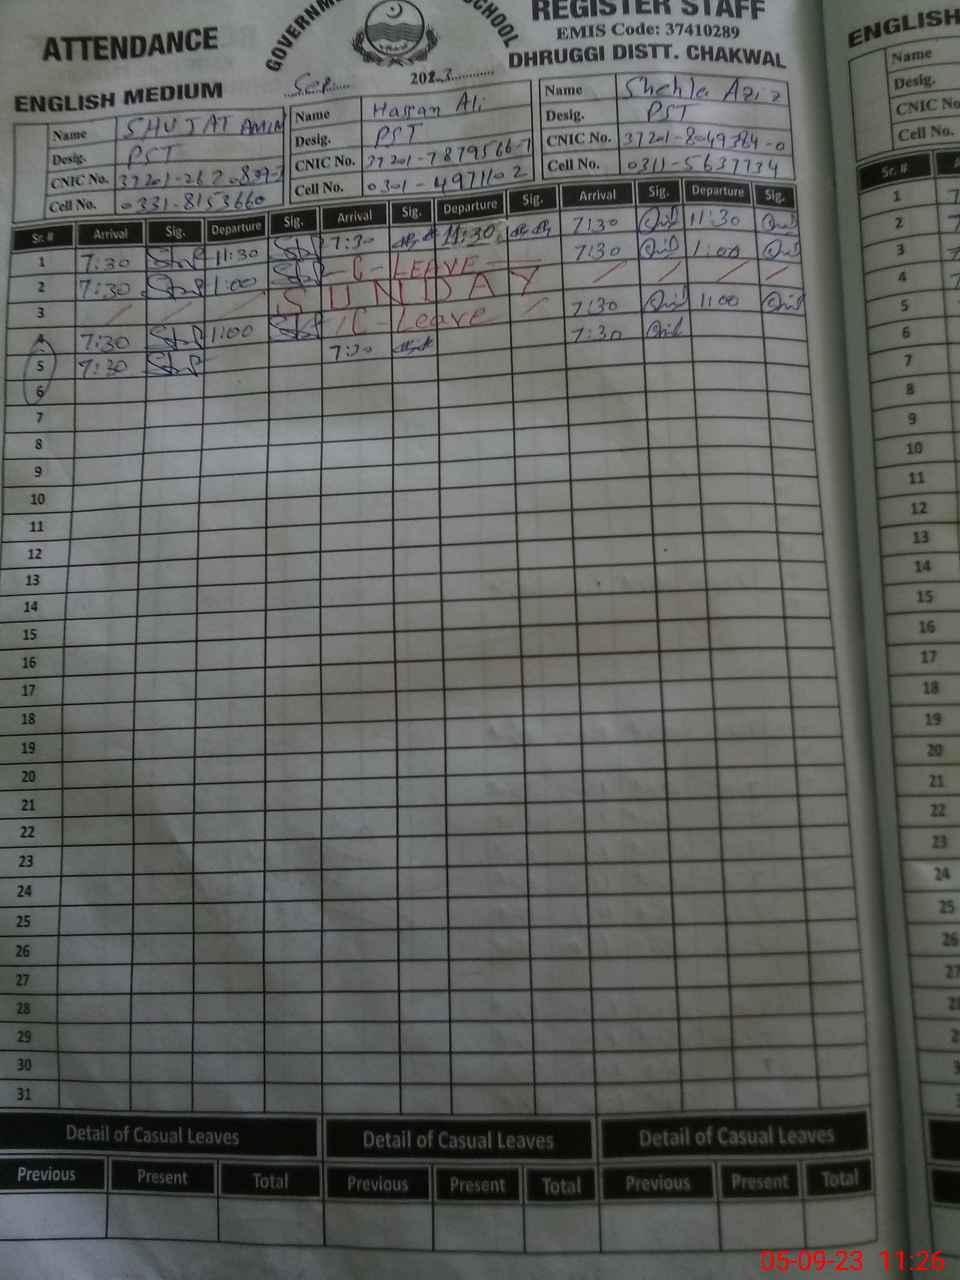 ATTENDANCE GOVERNM SCHOOL REGISTER STAFF
EMIS Code: 37410289
DHRUGGI DISTT. CHAKWAL
ENGLISH MEDIUM Sep 2023
Name SHUJAT AMIN Name Hassan Ali Name Shehla Aziz
Desig. PST Desig. PST Desig. PST
CNIC No. CNIC No. 37201-7879566-7 CNIC No. 37201-8049784-0
Cell No. 0331-8153660 Cell No. 0301-4971102 Cell No. 0311-5637734
Sr. # Arrival Sig. Departure Sig. Arrival Sig. Departure Sig. Arrival Sig. Departure Sig.
1 7:30 11:30 7:30 11:30 7:30 11:30
2 7:30 1:00 C-LEAVE 7:30 1:00
3 SUNDAY
4 7:30 1:00 C-Leave 7:30 1:00
5 7:30 7:30 7:30
6
7
8
9
10
11
12
13
14
15
16
17
18
19
20
21
22
23
24
25
26
27
28
29
30
31
Detail of Casual Leaves Detail of Casual Leaves Detail of Casual Leaves
Previous Present Total Previous Present Total Previous Present Total
ENGLISH
Name
Desig.
CNIC No
Cell No.
Sr. #
1
2
3
4
5
6
7
8
9
10
11
12
13
14
15
16
17
18
19
20
21
22
23
24
25
26
27
05-09-23 11:26